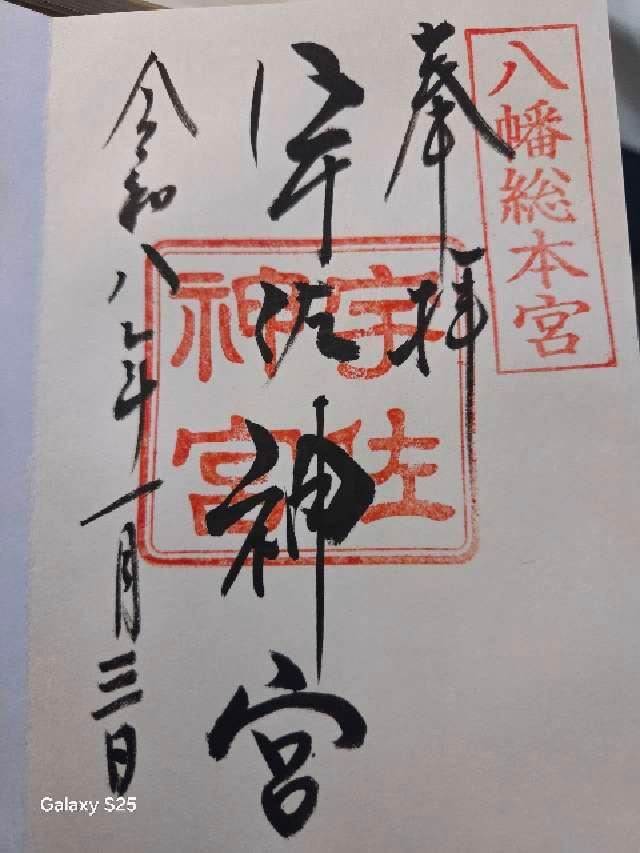 八幡総本宮
奉拝
宇佐神宮
宇佐
神宮
令和八年一月三日
Galaxy S25